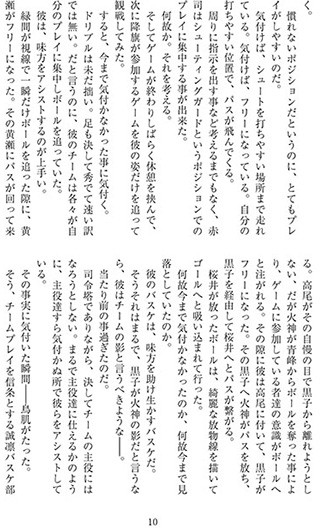 く。
　慣れないポジションだというのに、とてもプレ
イがしやすいのだ。
　気付けば、シュートを打ちやすい場所まで走れ
ている。気付けば、フリーになっている。自分の
打ちやすい位置で、パスが飛んでくる。
　周りに指示を出す事など考えるまでもなく、赤
司はシューティングガードというポジションでの
プレイに集中する事が出来た。
　何故か。それを考える。
　そしてゲームが終わりしばらく休憩を挟んで、
次に降旗が参加するゲームを彼の姿だけを追って
観戦してみた。
　すると、今まで気付かなかった事に気付く。
　ドリブルは未だ拙い。足も決して秀でて速い訳
では無い。だと言うのに、彼のチームは各々が自
分のプレイに集中しボールを追っていた。
　彼は、味方をアシストするのが上手い。
　緑間が視線で一瞬だけボールを追った隙に、黄
瀬がフリーになった。その黄瀬にパスが回って来
る。高尾がその自慢の目で黒子から離れようとし
ない、だが火神が青峰からボールを奪った事によ
り、ゲームに参加している者達の意識がボールへ
と注がれる。その隙に彼は高尾に付いて、黒子が
フリーになった。その黒子へ火神がパスを放ち、
黒子を経由して桜井へとパスが繋がる。
　桜井が放ったボールは、綺麗な放物線を描いて
ゴールへと吸い込まれて行った。
　何故今まで気付かなかったのか、何故今まで見
落としていたのか。
　彼のバスケは、味方を助け生かすバスケだ。
　そうそれはまるで、黒子が火神の影だと言うな
ら、彼はチームの影と言うべきような――。
　当たり前の事過ぎたのだ。
　司令塔でありながら、決してチームの主役には
なろうとしない。まるで主役達に仕えるかのよう
に、主役達すら気付かぬ所で彼らをアシストして
いる。
　その事実に気付いた瞬間――鳥肌がたった。
　そう、チームプレイを信条とする誠凛バスケ部
10